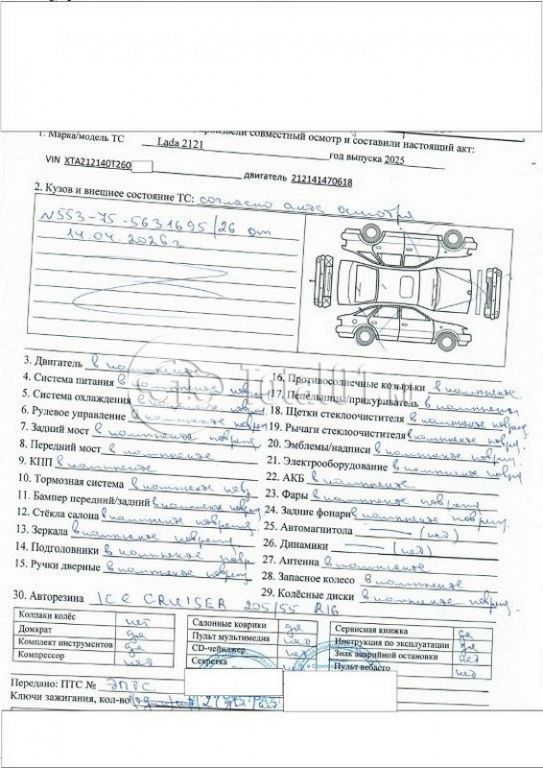 произвели совместный осмотр и составили настоящий акт:
1. Марка/модель ТС Lada 2121 год выпуска 2025
VIN XTA212140T260 двигатель 212141470618
2. Кузов и внешнее состояние ТС: согласно акта осмотра
№553-75-5631695/26 от
14.04.2026г
3. Двигатель в комплекте
4. Система питания в комплекте повр
5. Система охлаждения в комплекте повр
6. Рулевое управление в комплекте повр
7. Задний мост в комплекте повреж
8. Передний мост в комплекте
9. КПП в комплекте
10. Тормозная система в комплекте повр
11. Бампер передний/задний в комплекте повреж
12. Стёкла салона в комплекте повреж
13. Зеркала в комплекте повреж
14. Подголовники в комплекте повр
15. Ручки дверные в комплекте повреж
16. Противосолнечные козырьки в комплекте
17. Пепельница/прикуриватель в комплекте
18. Щетки стеклоочистителя в комплекте повреж
19. Рычаги стеклоочистителя в комплекте повреж
20. Эмблемы/надписи в комплекте повреж
21. Электрооборудование в комплекте повреж
22. АКБ в комплекте
23. Фары в комплекте повреж
24. Задние фонари в комплекте повреж
25. Автомагнитола — (нет)
26. Динамики — (нет)
27. Антенна в комплекте
28. Запасное колесо в комплекте
29. Колёсные диски в комплекте повреж
30. Авторезина ICE CRUISER 205/55 R16
Колпаки колёс нет
Домкрат да
Комплект инструментов да
Компрессор нет
Салонные коврики да
Пульт мультимедиа нет
CD-чейнжер нет
Секретка
Сервисная книжка да
Инструкция по эксплуатации да
Знак аварийной остановки нет
Пульт вебасто нет
Передано: ПТС № ЭПТС
Ключи зажигания, кол-во